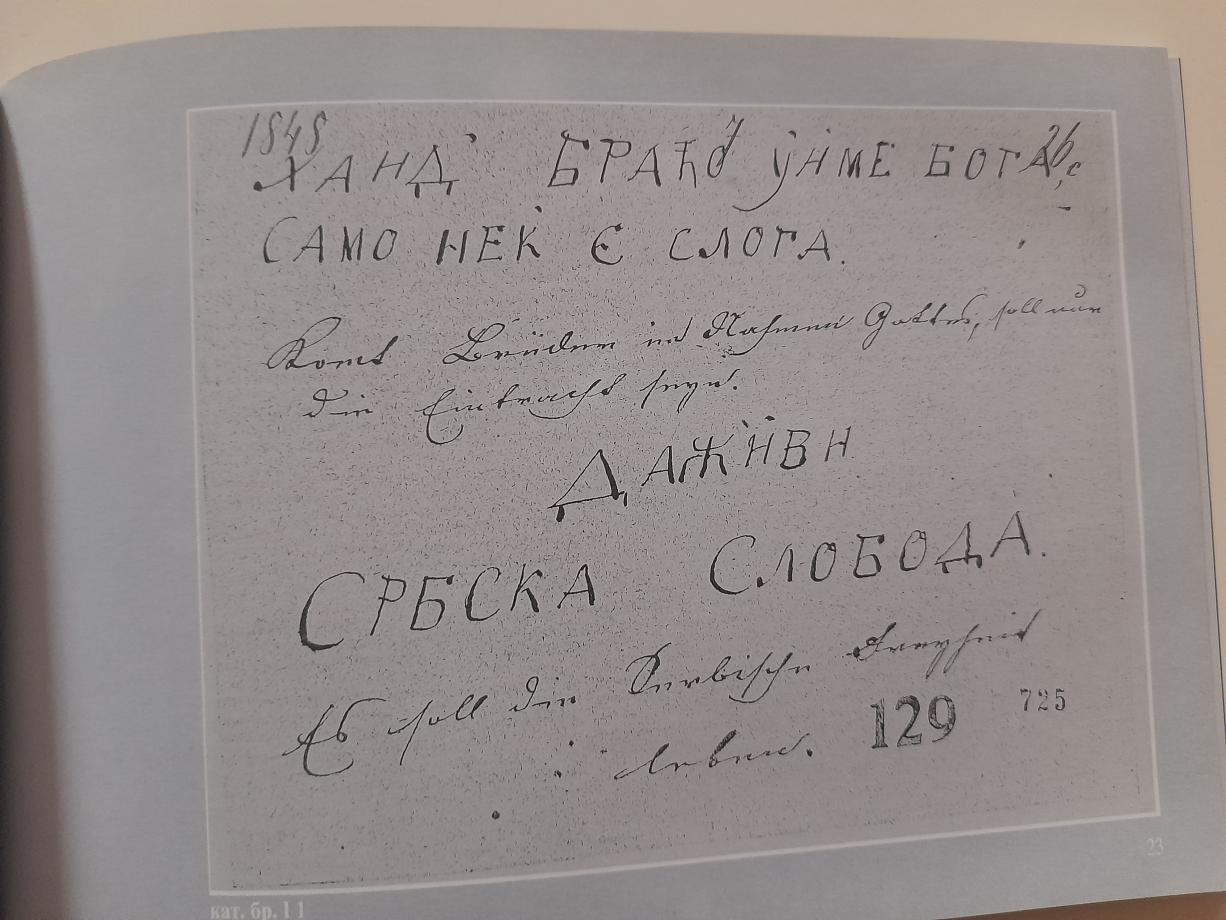 1848
ХАНД БРАЋО У НМЕ БОГА,
САМО НЕК Є СЛОГА.
Komt Brüder im Nahmen Gottes, soll nur
die Eintracht seyn.
ДА ЖНВН
СРБСКА СЛОБОДА.
Es soll die Serbische Freyheit
leben.
129 725
23
кат. бр. 11